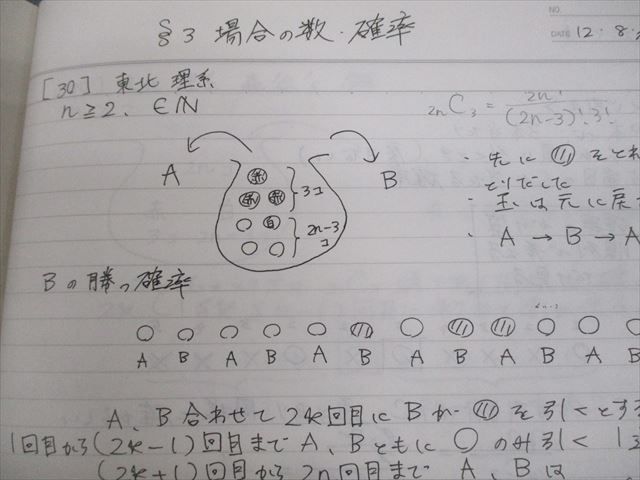 NO.
§3 場合の数・確率
DATE 12・8・
[30] 東北 理系
n≧2、∈ℕ
2nC3 = 2n! / (2n-3)!・3!
A
B
赤
赤 赤
白
3コ
2n-3コ
・先に を とれ
とりだした
・玉は元に戻
・A → B → A
Bの勝つ確率
A B A B A B A B A B A B
A、B合わせて2k回目にBが を引くとす
1回目から(2k-1)回目までA、Bともに○のみ引く
(2k+1)回目から2n回目まで A、Bは